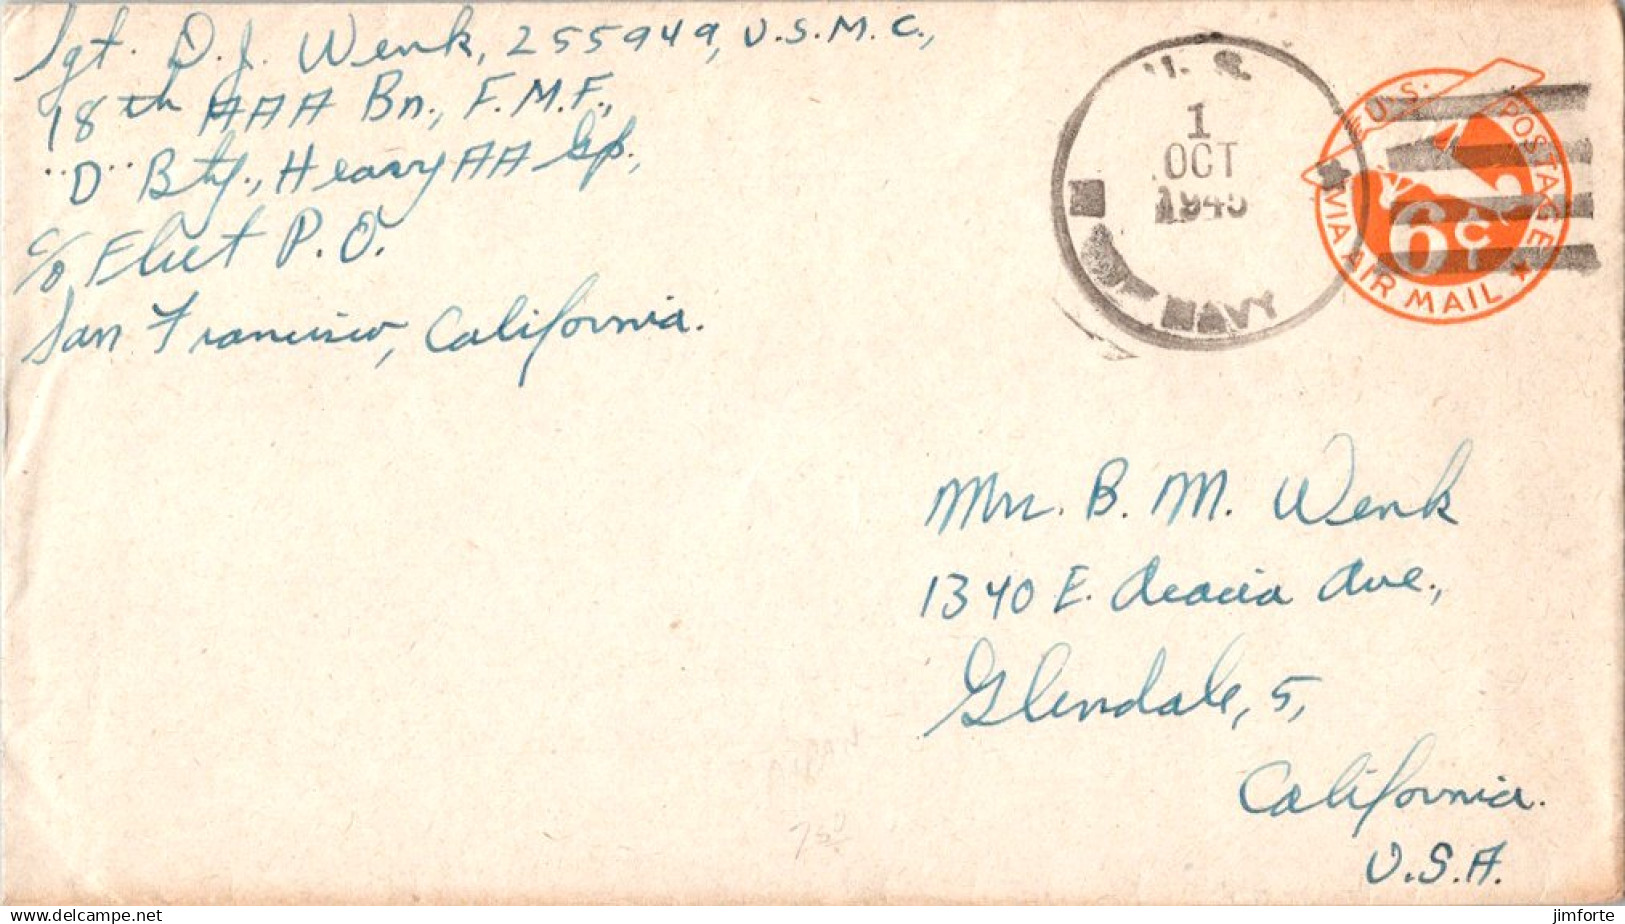 Sgt. D. J. Wenk, 255949, U.S.M.C.,
18th AAA Bn., F.M.F.,
"D" Bty., Heavy AA Gp.,
c/o Fleet P.O.
San Francisco, California.
U. S.
1
OCT
1945
NAVY
U.S. POSTAGE
6¢
VIA AIR MAIL
Mrs. B. M. Wenk
1340 E. Acacia Ave.,
Glendale, 5,
California.
U.S.A.
delcampe.net
jimforte